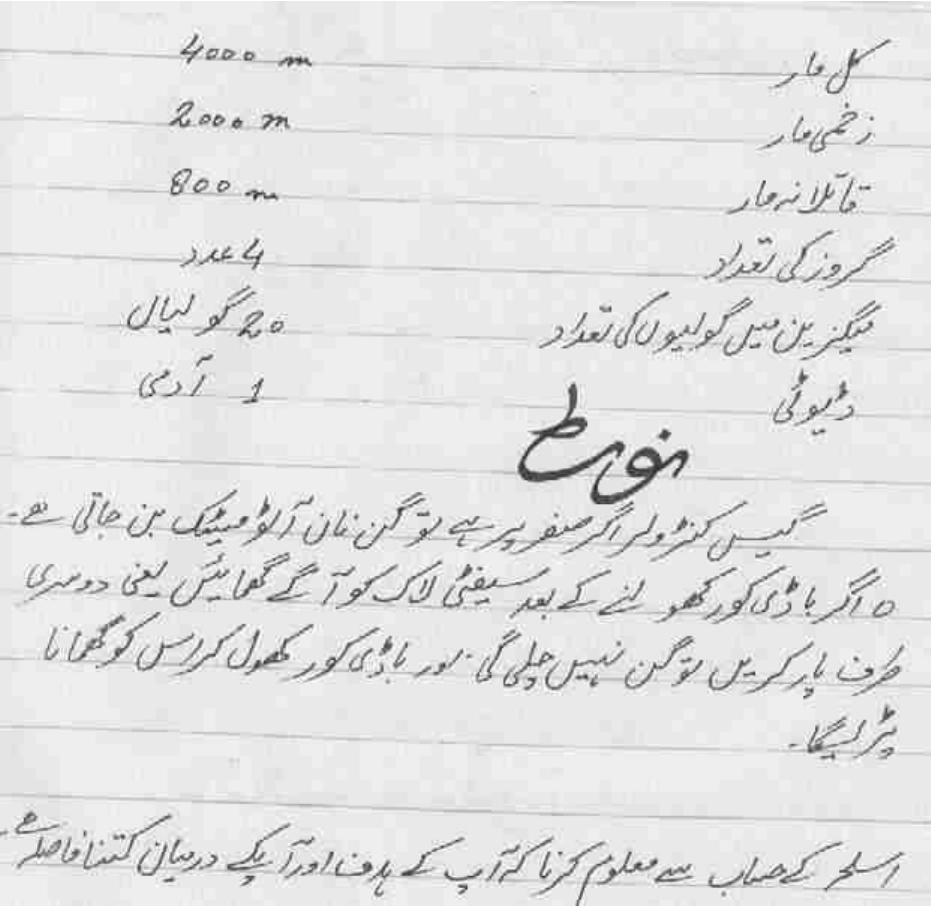 کل مار 4000 m
زخمی مار 2000 m
قاتلانہ مار 800 m
گروز کی تعداد 4 عدد
میگزین میں گولیوں کی تعداد 20 گولیاں
ڈیوٹی 1 آدمی
نوٹ
گیس کنٹرولر اگر صفر پر ہے تو گن نان آٹومیٹک بن جاتی ہے۔
o اگر باڈی کور کھولنے کے بعد سیفٹی لاک کو آگے گھمائیں یعنی دوسری
طرف پار کریں تو گن نہیں چلی گی اور باڈی کور کھول کر اس کو گھمانا
پڑیگا۔
اسلحہ کے حساب سے معلوم کرنا کہ آپ کے ہدف اور آپکے درمیان کتنا فاصلہ ہے۔